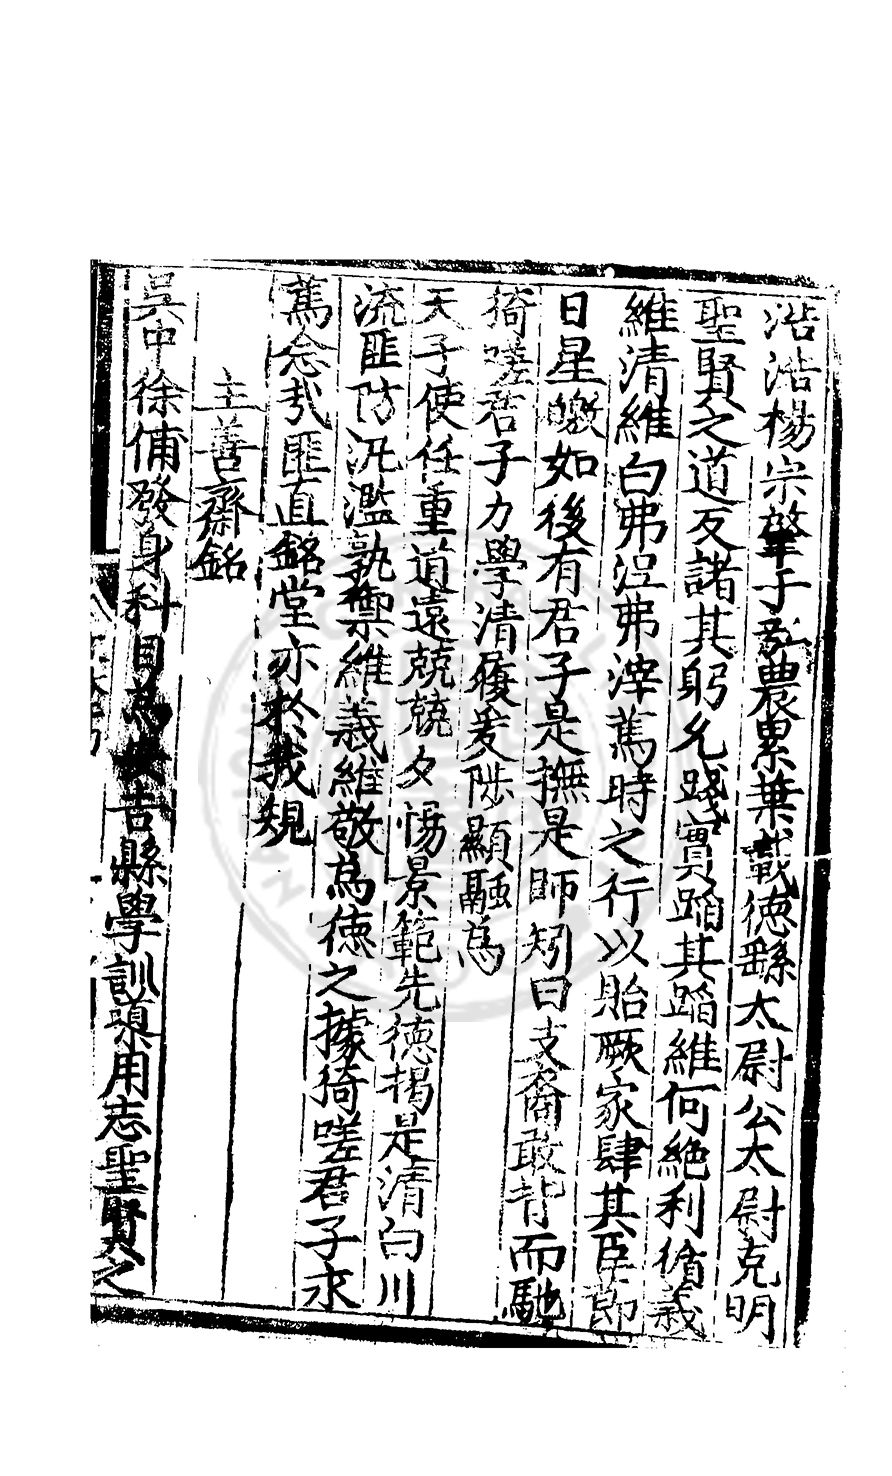 浩浩楊宗肇于弘農累葉載德繇太尉公太尉克明
聖賢之道反諸其躬允踐實蹈其蹈維何絶利循義
維清維白弗涅弗滓蔿時之行以貽厥家肆其臣節
日星皦如後有君子是撫是師矧曰支裔敢背而馳
猗嗟君子力學清履爰陟顯融爲
天子使任重道遠兢兢夕惕景範先德揭是清白川
流匪防汎濫孰禦維義維敬爲德之據猗嗟君子求
蔿念㢤匪直銘堂亦於我規
主善齋銘
吳中徐傋發身科目爲安吉縣學訓𨗇用志聖賢之